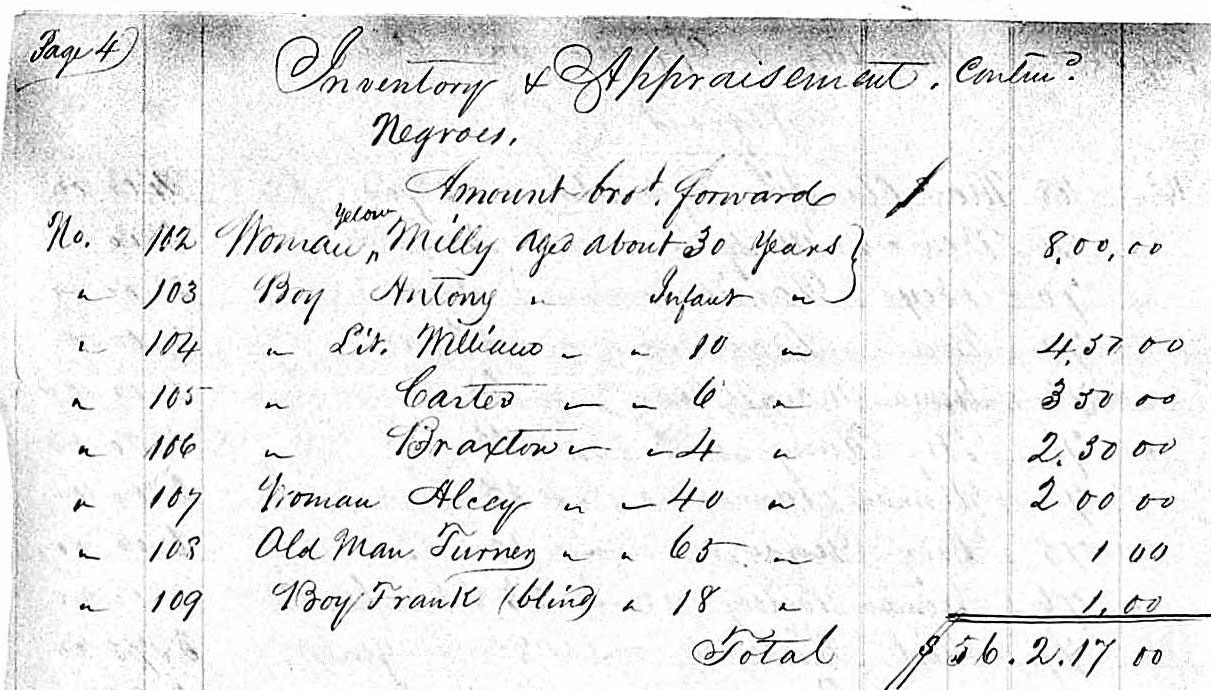 Page 4)
Inventory & Appraisement. Contin^d.
Negroes.
Amount bro^t. forward $
Yelow
No. 102 Woman „ Milly aged about 30 Years } 8,00,00
" 103 Boy Antony " Infant "
" 104 " Lit. William " " 10 " 4,50 00
" 105 " Carter " " 6 " 3 50 00
" 106 " Braxton " " 4 " 2.50 00
" 107 Woman Alcey " " 40 " 2 00 00
" 108 Old Man Turner " " 65 " 1 00
" 109 Boy Frank (blind) " 18 " 1,00
Total $56.2.17 00